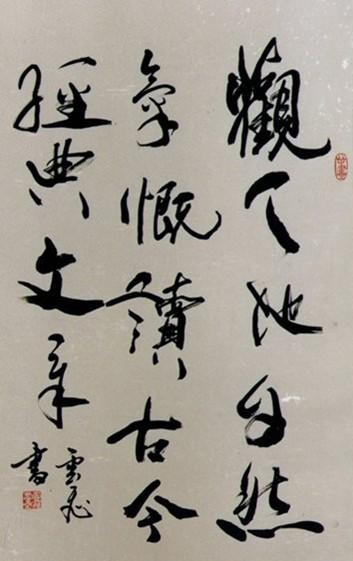 觀天地自然
氣慨讀古今
經典文章
雲飛
書